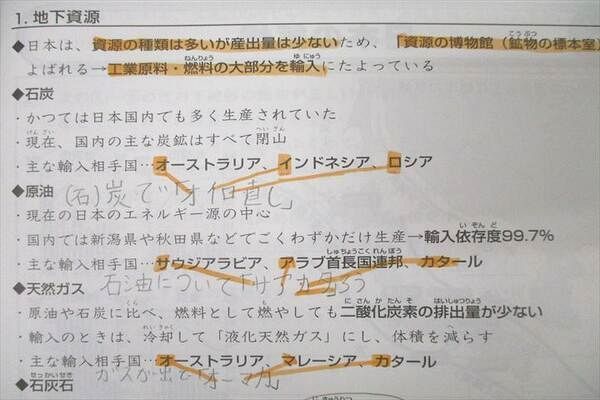 1. 地下資源
◆日本は、資源の種類は多いが産出量は少ないため、「資源の博物館（鉱物の標本室）
よばれる→工業原料・燃料の大部分を輸入にたよっている
◆石炭
・かつては日本国内でも多く生産されていた
・現在、国内の主な炭鉱はすべて閉山
・主な輸入相手国…オーストラリア、インドネシア、ロシア
◆原油 (石)炭で「オイロ直し」
・現在の日本のエネルギー源の中心
・国内では新潟県や秋田県などでごくわずかだけ生産→輸入依存度99.7%
・主な輸入相手国…サウジアラビア、アラブ首長国連邦、カタール
石油について「サアカタろう
◆天然ガス
・原油や石炭に比べ、燃料として燃やしても二酸化炭素の排出量が少ない
・輸入のときは、冷却して「液化天然ガス」にし、体積を減らす
・主な輸入相手国…オーストラリア、マレーシア、カタール
◆石灰石 ガスが出て「オーマカ」